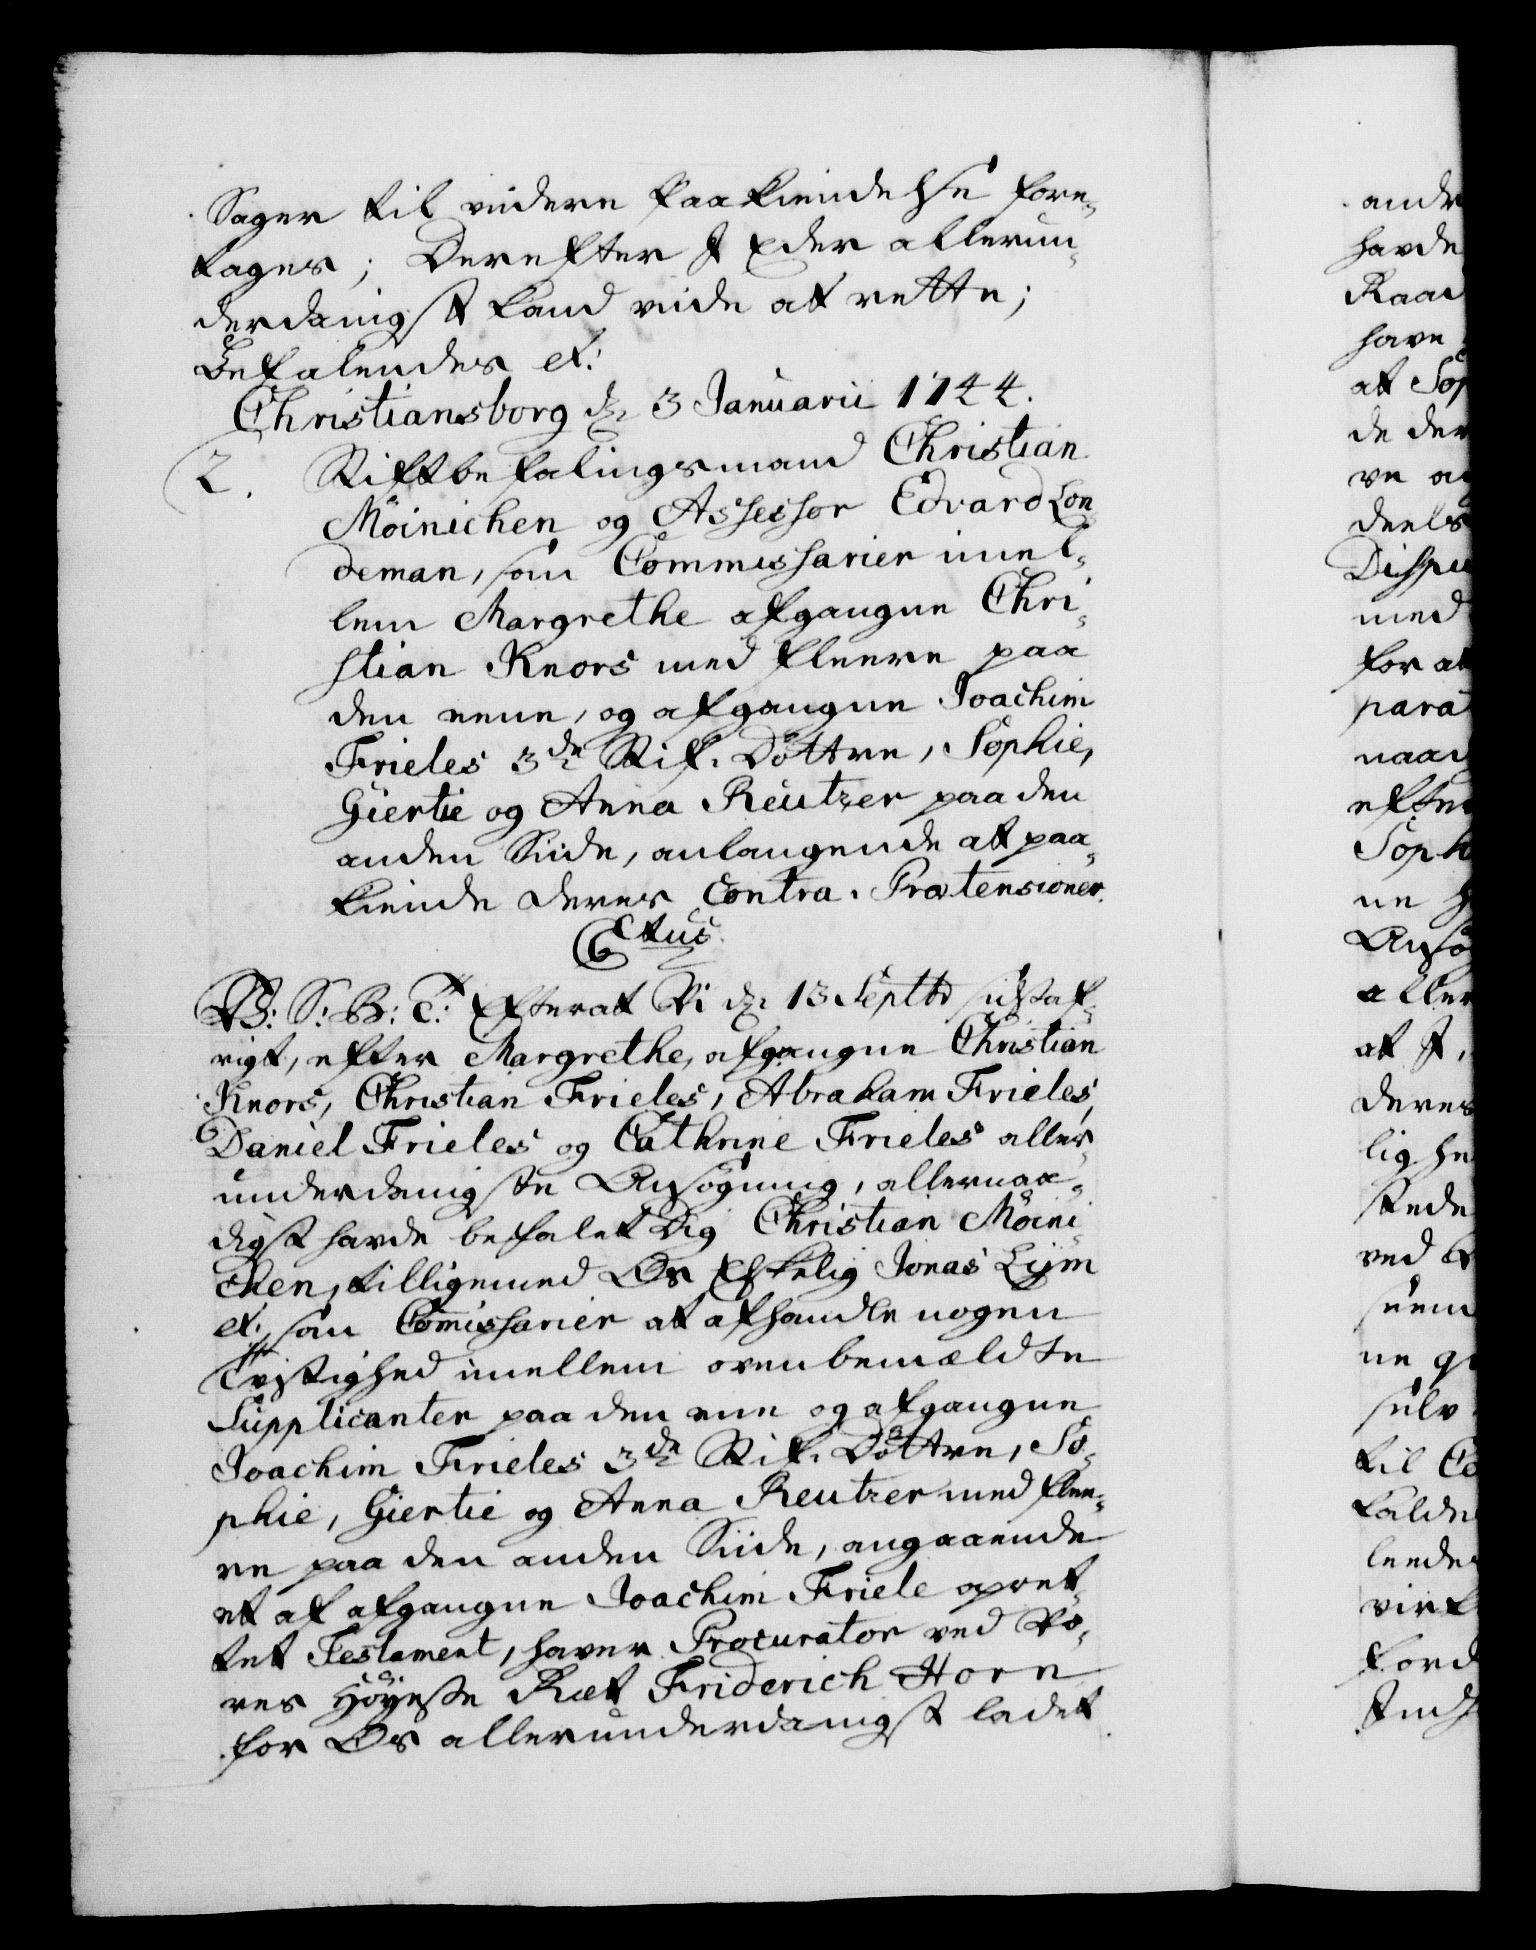 Sager til videre Paakiendelse fore-
tages; Derefter I Eder allerun-
derdanigst kand vide at rette;
Befalendes etc:
Christiansborg dn 3 Januarii 1744.
2. Stiftbefalingsmand Christian
Möinichen og Assessor Edvard Lon
deman, som Commissarier imel-
lem Margrethe afgangne Chri-
stian Knors med fleere paa
den eene, og afgangne Joachim
Frieles 3de Stif-Döttre, Sophie,
Giertie og Anna Reutzer paa den
anden Siide, anlangende at paa-
kiende deres Contra-Prætensioner.
C6tus.
V: S: B: T: Efterat Vi dn 13 Septbr sidstaf-
vigt, efter Margrethe, afgangne Christian
Knors, Christian Frieles, Abraham Frieles,
Daniel Frieles og Cathrine Frieles aller-
underdanigste Ansögning, allernaa-
digst havde befalet Dig Christian Möini
chen, tilligemed Os Elskelig Jonas Lijm
etc., som Commissarier at afhandle nogen
Tvistighed imellem ovenbemældte
Supplicanter paa den eene og afgangne
Joachim Frieles 3de Stif-Döttre, So-
phie, Giertie og Anna Reutzer med flee-
re paa den anden Siide, angaaende
et af afgangne Joachim Friele opret-
tet Testament, haver Procurator ved Vo-
res Höyeste Ræt Friderich Horn
for Os allerunderdanigst ladet
andr
havde
Raad
have
at Sop
de der
ve a
deels
Dispu
med
for at
para
naad
efter
Soph
ne
Ansög
aller
at I,
deres
lighe
stede
ved
suem
ne g
selv
til Co
falde
leede
virk
ford
Ind